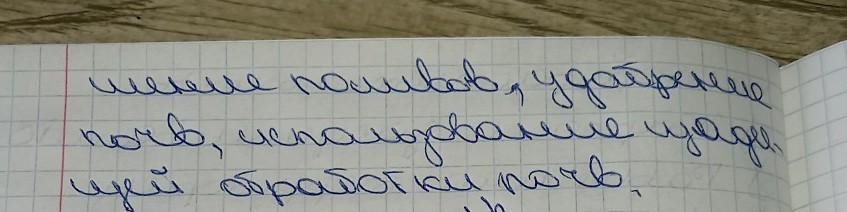 шение поливов, удобрение
почв, использование щадя-
щей обработки почв.